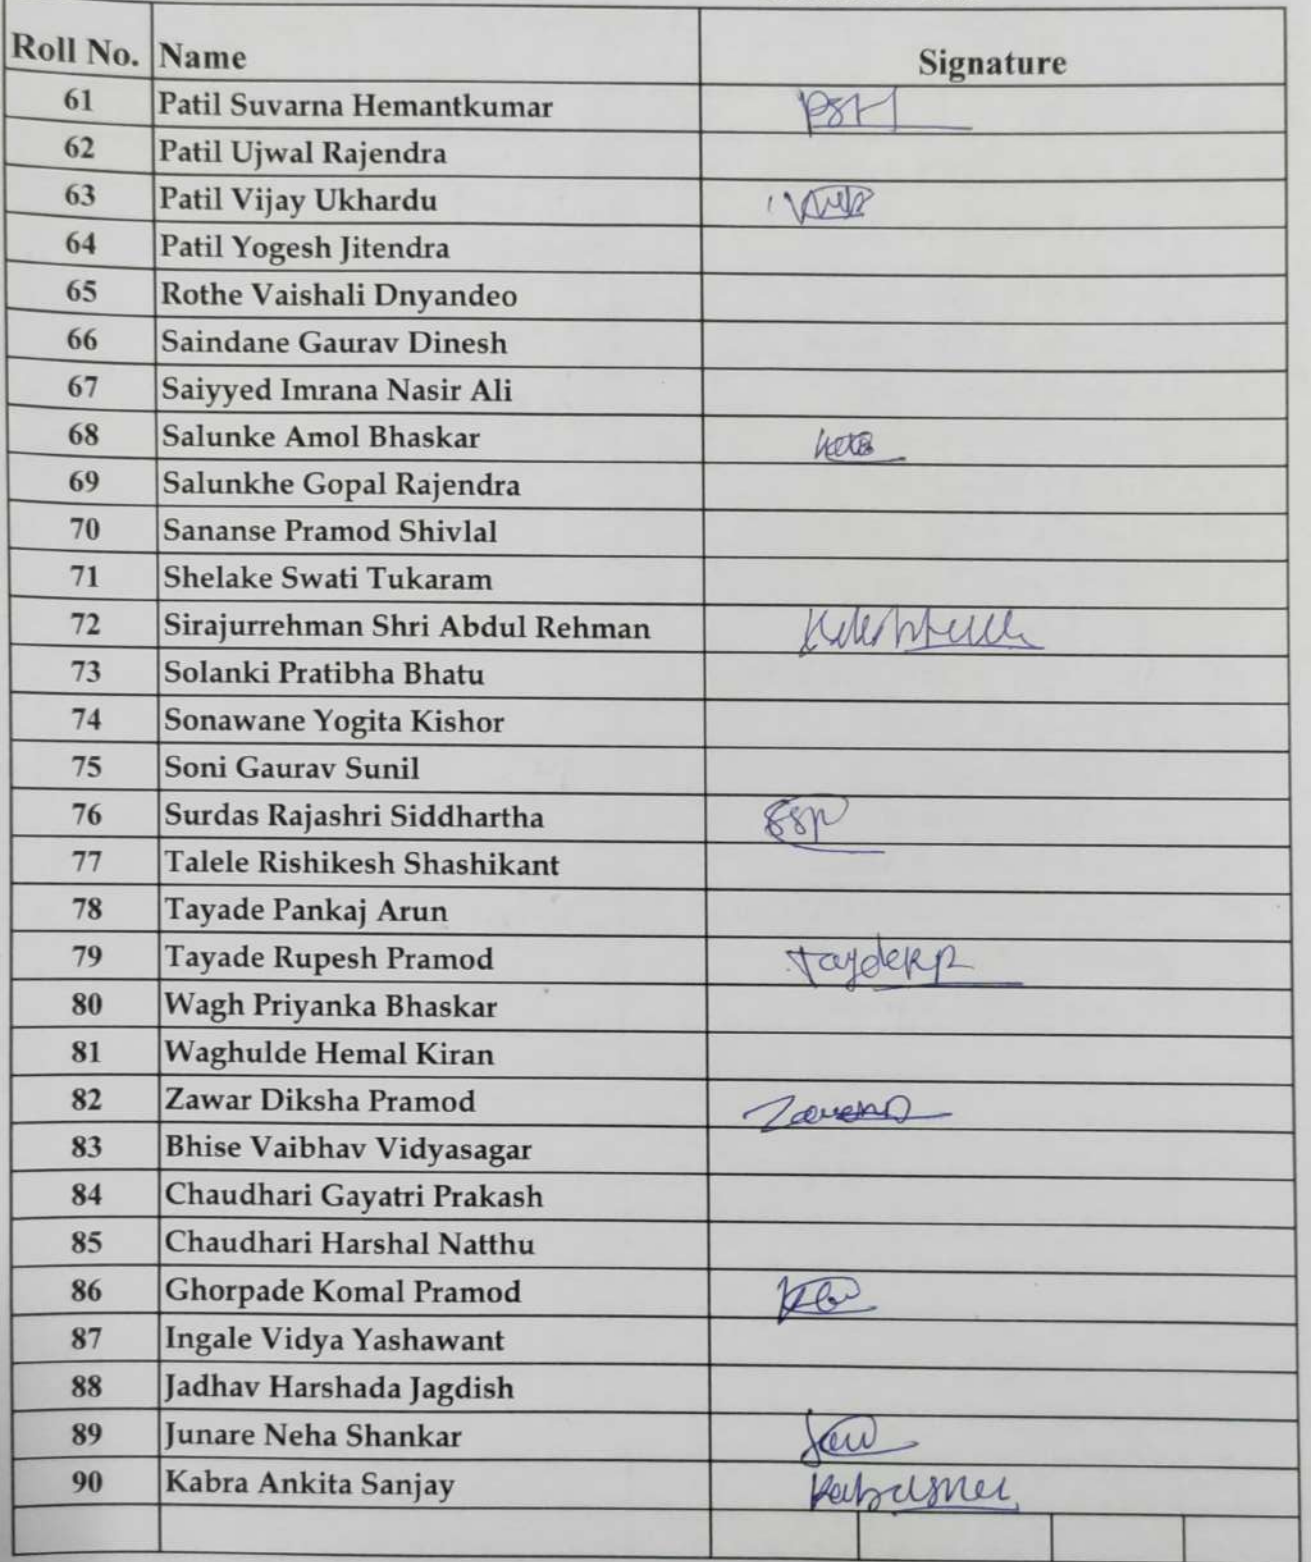 Roll No. Name Signature
61 Patil Suvarna Hemantkumar PSH
62 Patil Ujwal Rajendra
63 Patil Vijay Ukhardu
64 Patil Yogesh Jitendra
65 Rothe Vaishali Dnyandeo
66 Saindane Gaurav Dinesh
67 Saiyyed Imrana Nasir Ali
68 Salunke Amol Bhaskar
69 Salunkhe Gopal Rajendra
70 Sananse Pramod Shivlal
71 Shelake Swati Tukaram
72 Sirajurrehman Shri Abdul Rehman
73 Solanki Pratibha Bhatu
74 Sonawane Yogita Kishor
75 Soni Gaurav Sunil
76 Surdas Rajashri Siddhartha
77 Talele Rishikesh Shashikant
78 Tayade Pankaj Arun
79 Tayade Rupesh Pramod TaydeRP
80 Wagh Priyanka Bhaskar
81 Waghulde Hemal Kiran
82 Zawar Diksha Pramod
83 Bhise Vaibhav Vidyasagar
84 Chaudhari Gayatri Prakash
85 Chaudhari Harshal Natthu
86 Ghorpade Komal Pramod
87 Ingale Vidya Yashawant
88 Jadhav Harshada Jagdish
89 Junare Neha Shankar
90 Kabra Ankita Sanjay